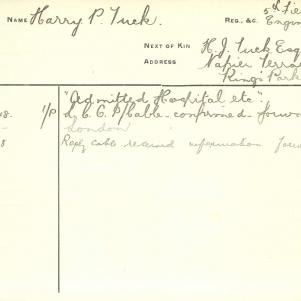 NAME Harry P. Tuck. REG. &C. 5th Fie
Engin
NEXT OF KIN H. J. Tuck Esq
ADDRESS Napier Terra
King's Park
"Admitted Hospital etc".
8. 1/P L.C.O. P/Cable - confirmed - forw
London
8 Reply cable received information